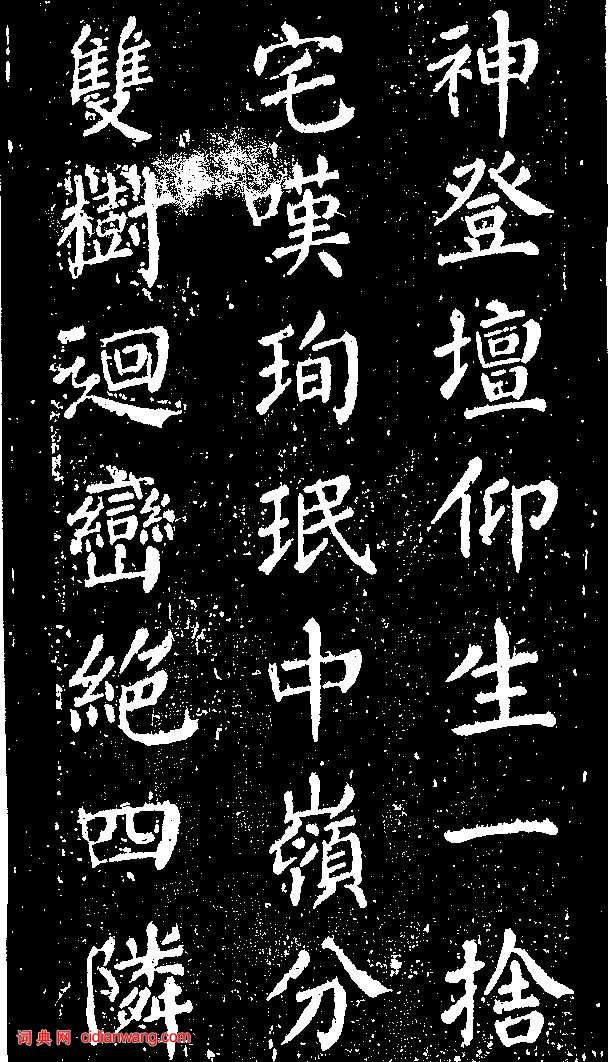 神登壇仰生一捨
宅嘆珣珉中嶺分
雙樹迴巒絕四隣
词典网 cidianwang.com